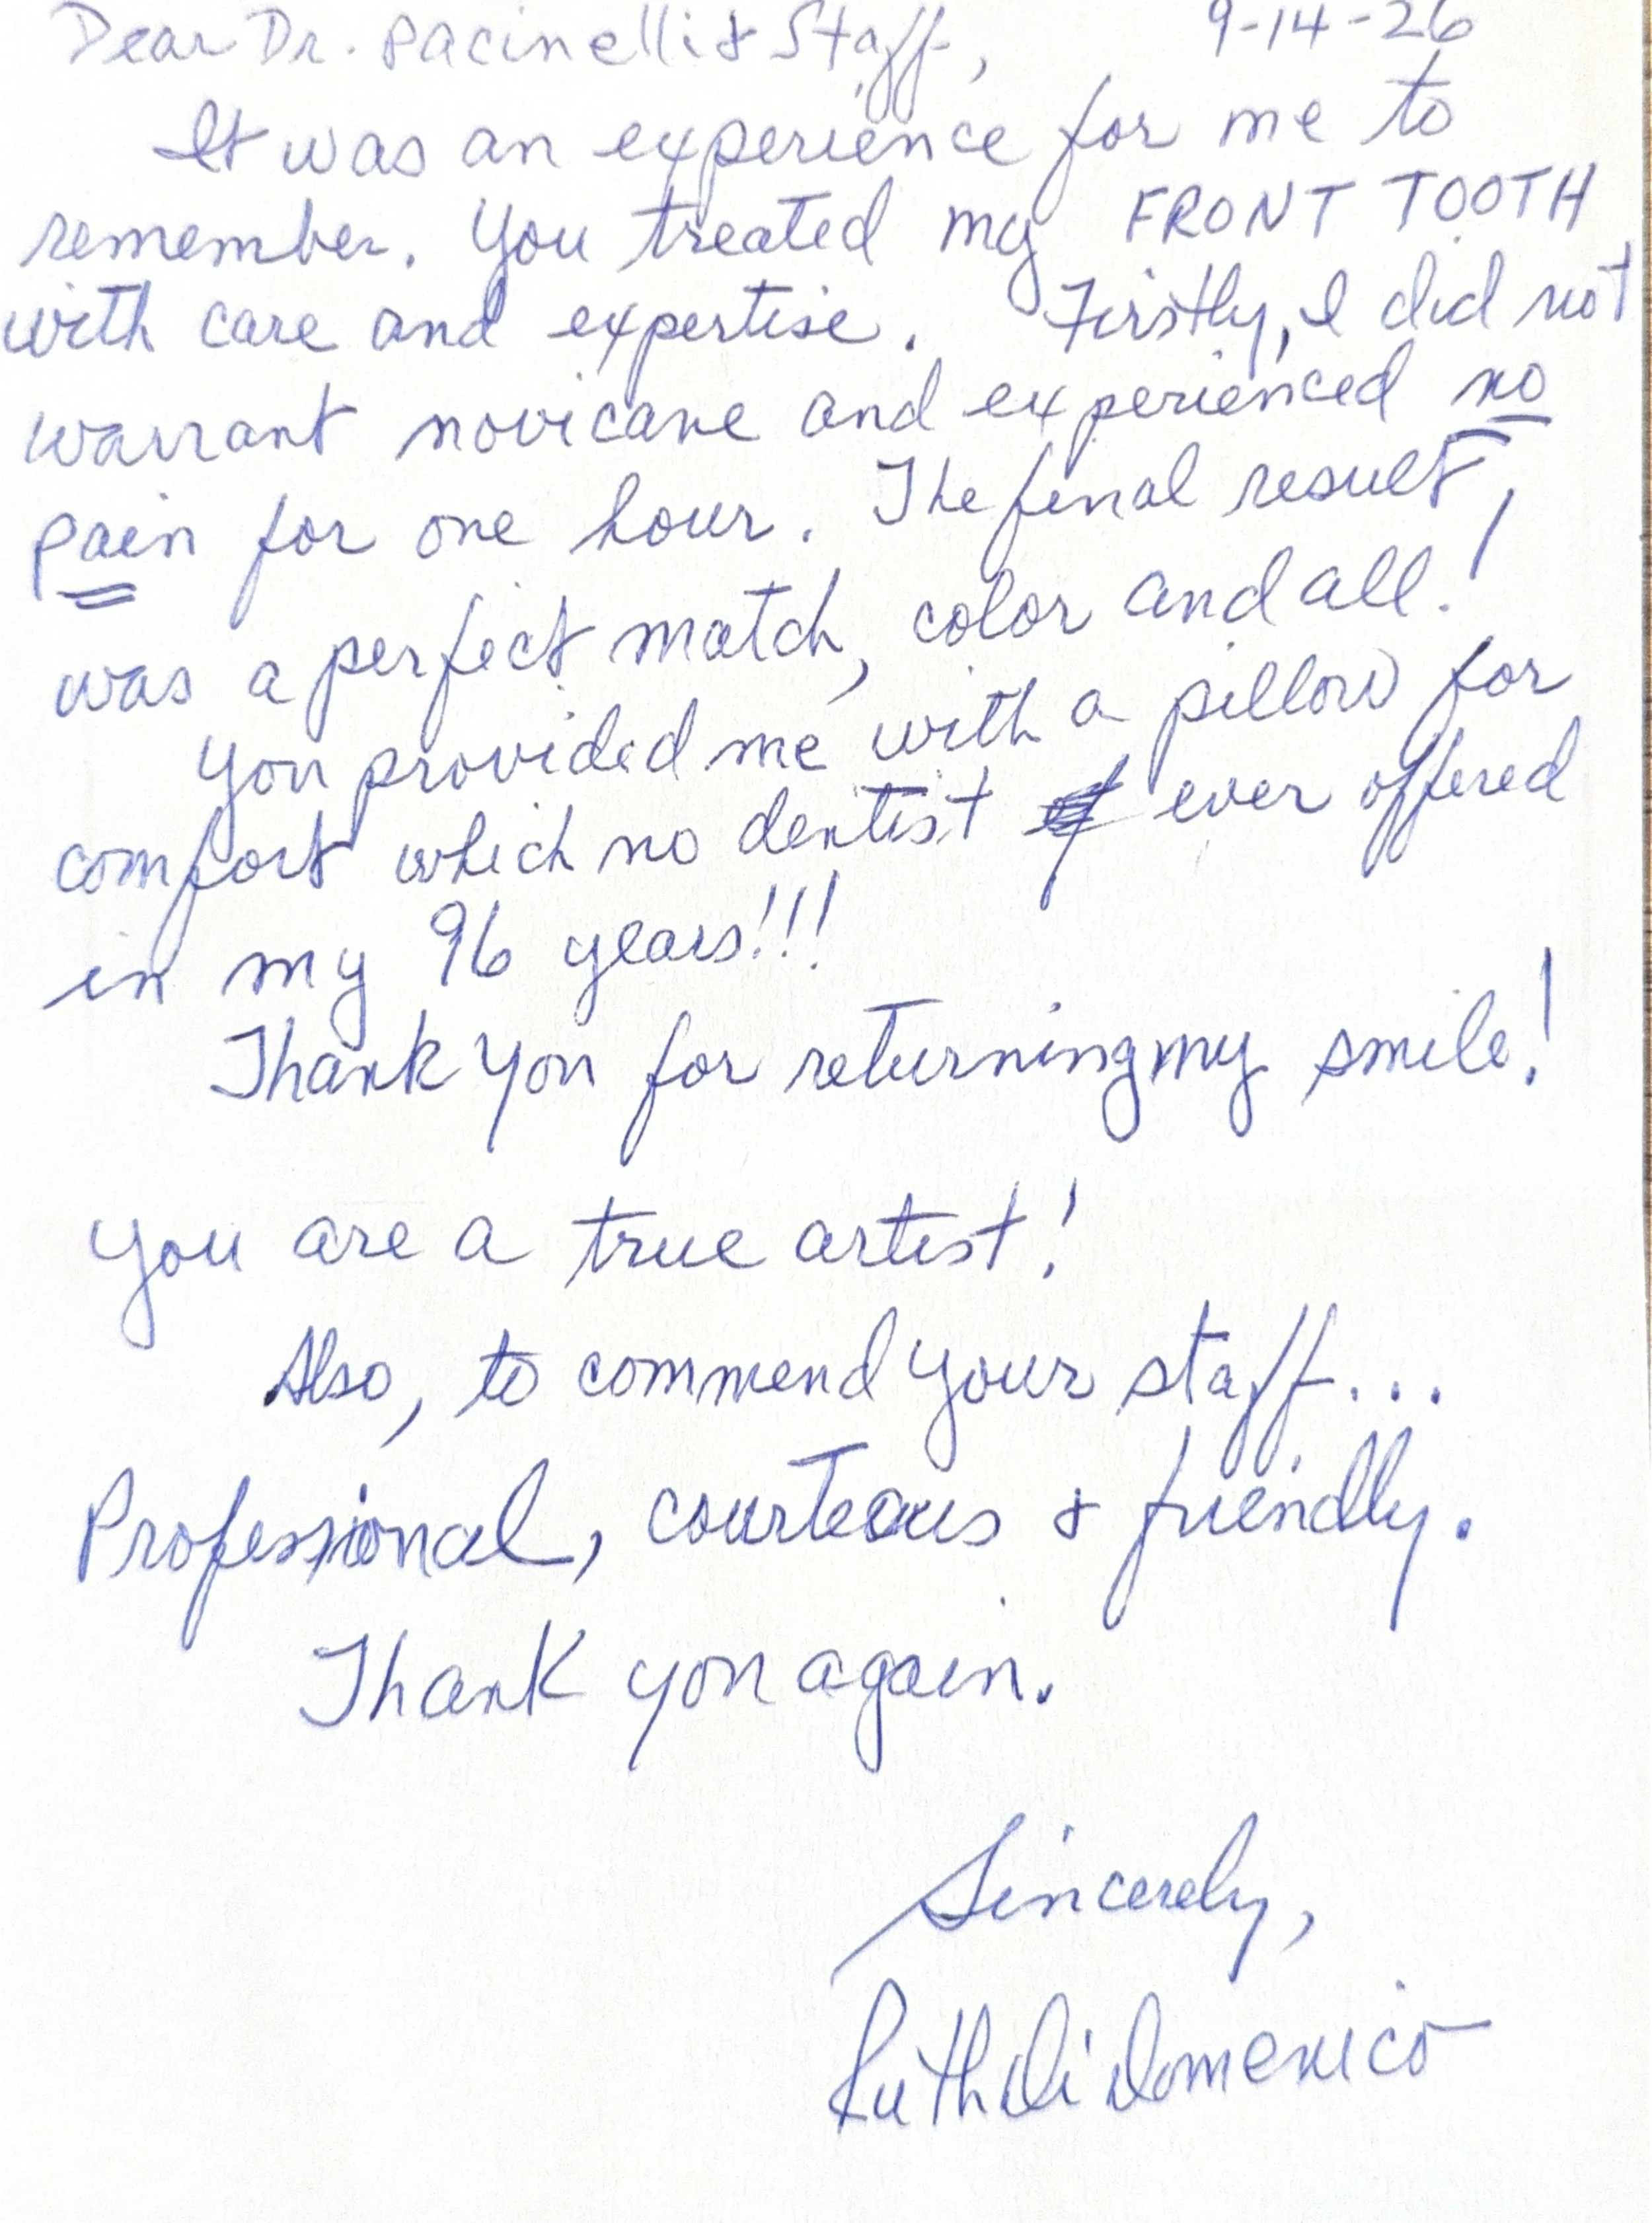 Dear Dr. Pacinelli & Staff, 9-14-26
It was an experience for me to
remember. You treated my FRONT TOOTH
with care and expertise. Firstly, I did not
warrant novicane and experienced no
pain for one hour. The final result,
was a perfect match, color and all!
You provided me with a pillow for
comfort which no dentist ever offered
in my 96 years!!!
Thank you for returning my smile!
You are a true artist!
Also, to commend your staff...
Professional, courteous & friendly.
Thank you again.
Sincerely,
Ruth DiDomenico